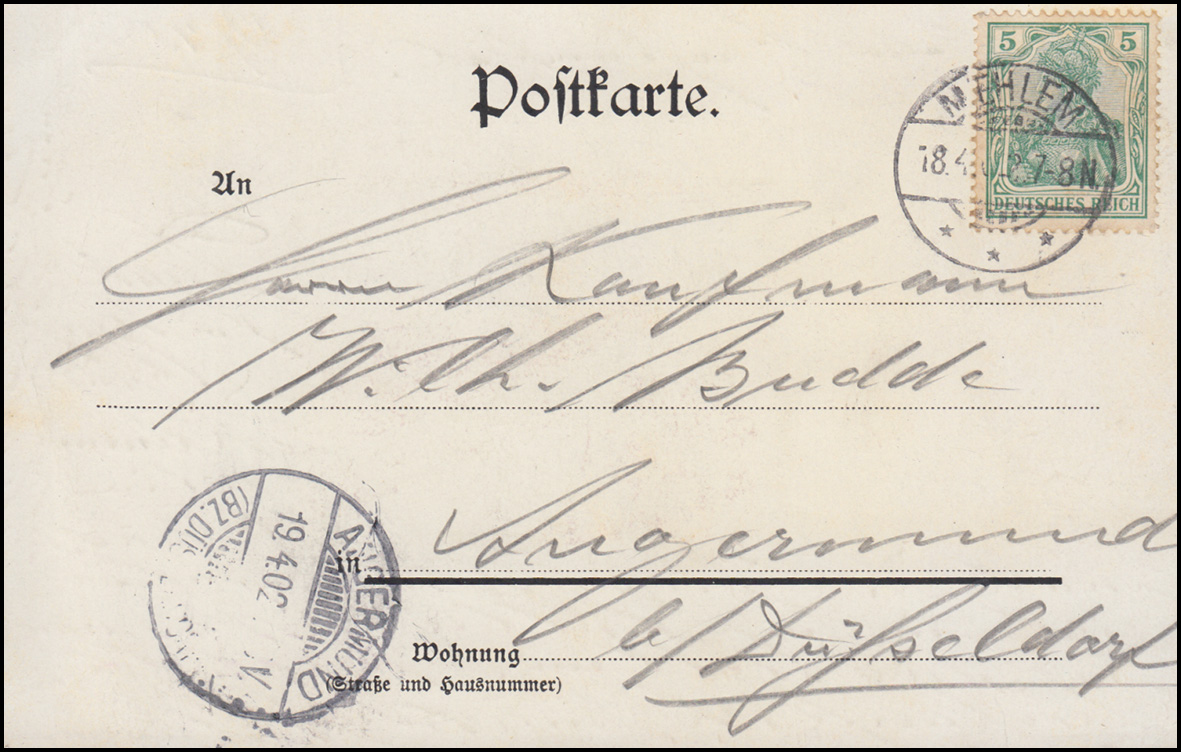 Postkarte.
5 5
DEUTSCHES REICH
MEHLEM
18.4.02.7-8N.
An
Herrn Kaufmann
Wilh. Budde
in Angermund
Wohnung b/ Düsseldorf
(Straße und Hausnummer)
ANGERMUND
19.4.02
V
(BZ.DÜS